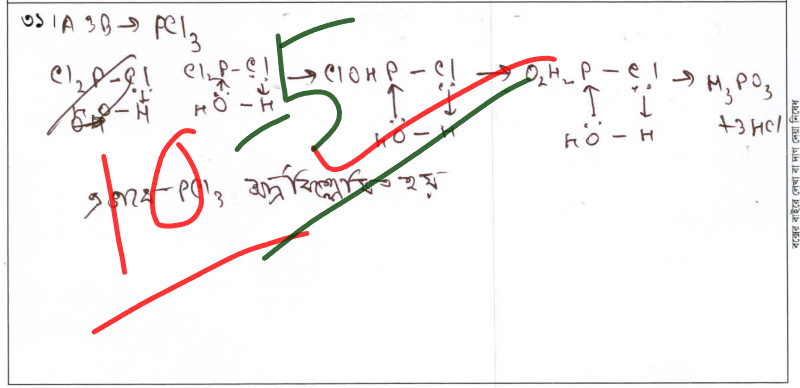 ৩১ 1A 3B → PCl3
Cl2P-Cl Cl2P-Cl → ClOHP-Cl → O2H2P-Cl → H3PO3
HO-H HÖ-H HÖ-H HÖ-H +3HCl
PCl3 আর্দ্রবিশ্লেষিত হয়
10
5
বক্সের বাইরে লেখা বা দাগ দেয়া নিষেধ